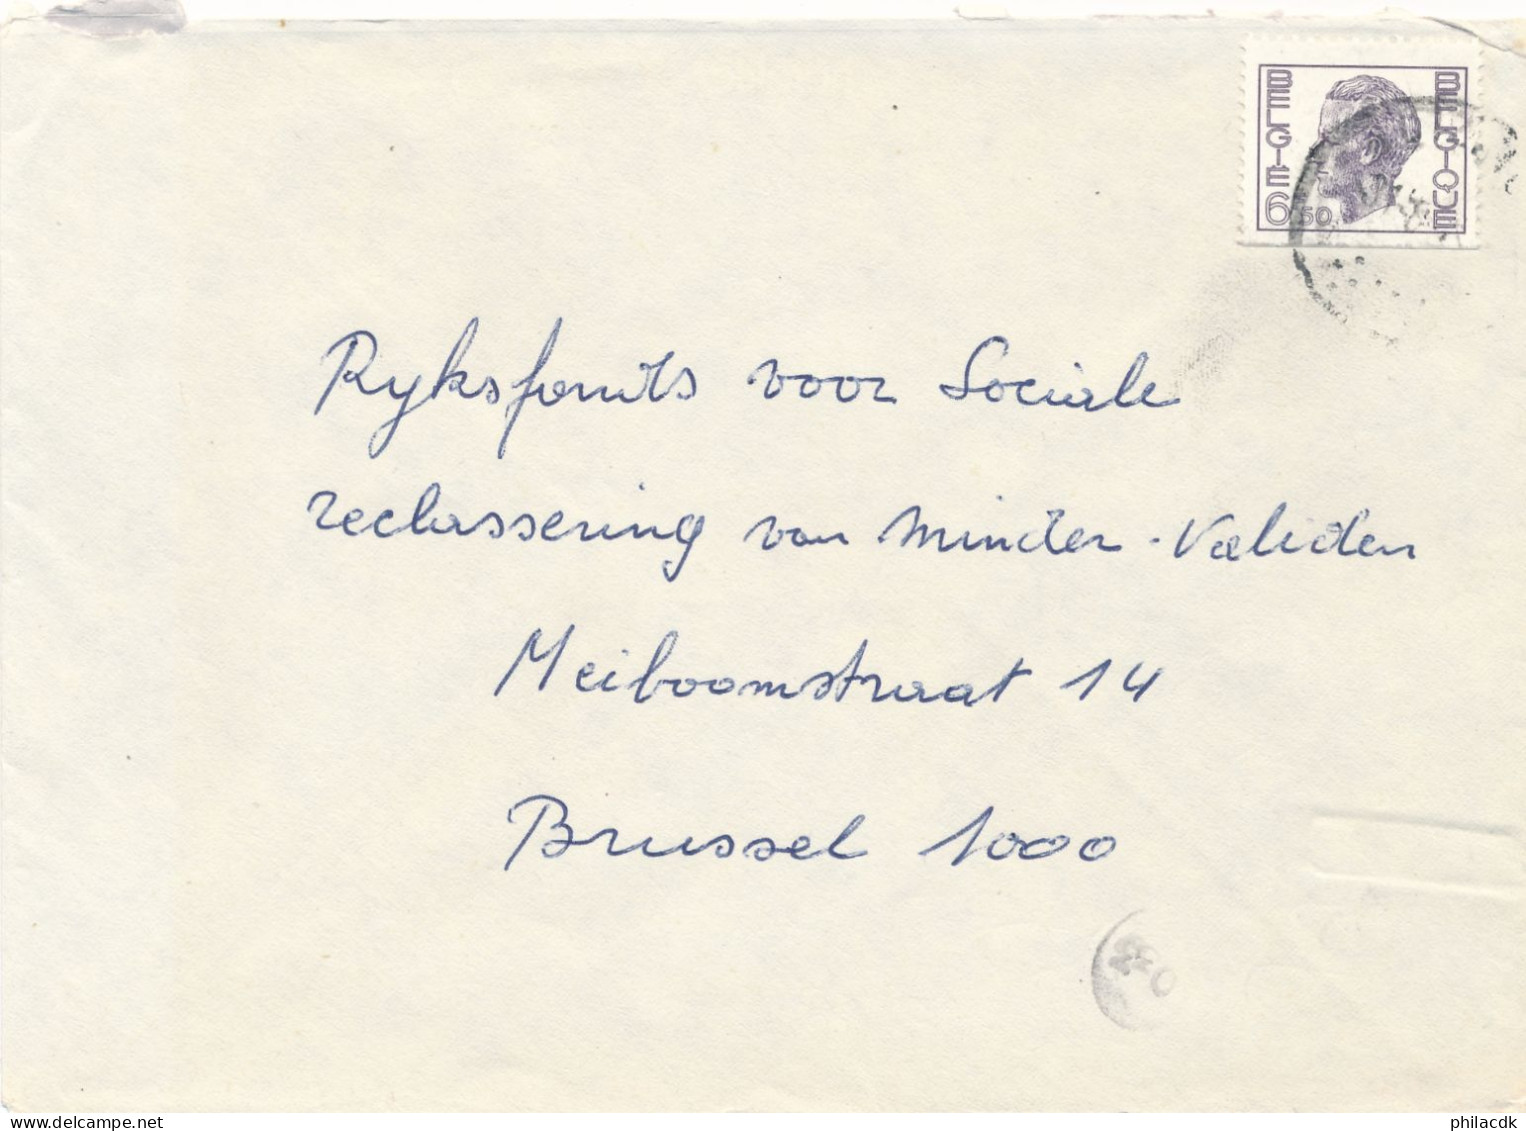 BELGIE BELGIQUE
6 50
Ryksfonds voor Sociale
reclassering van minder-Validen
Meiboomstraat 14
Brussel 1000
philacdk